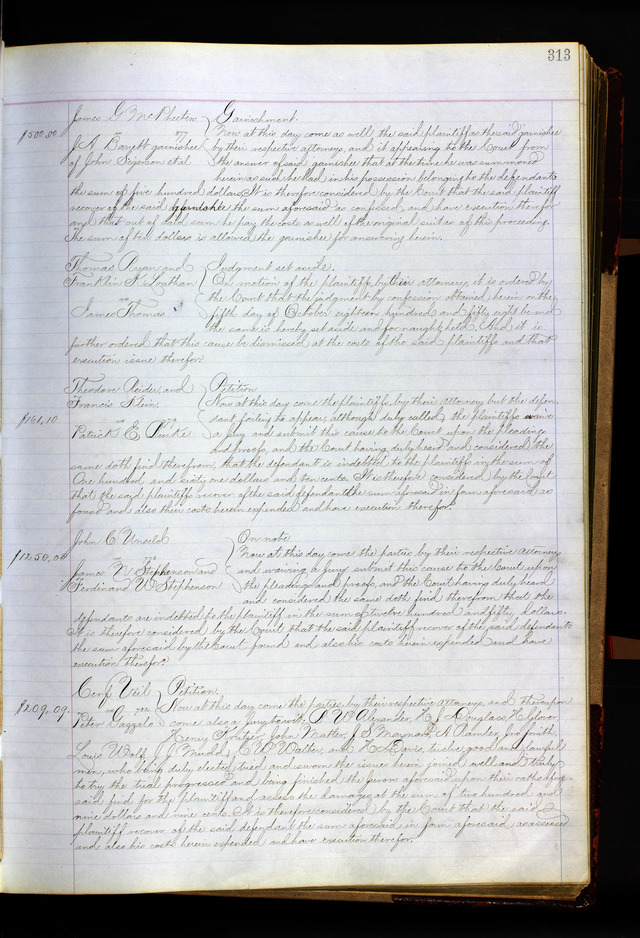 313
James G McPheeters Garnishment.
$500.00 877 Now at this day come as well the said plaintiff as the said garnishee
J. A. Barrett garnishee by their respective attorneys, and it appearing to the Court from
of John Sigerson et al the answer of said garnishee that at the time he was summoned
herein as such, he had in his possession belonging to the defendants
the sum of five hundred dollars, It is therefore considered by the Court that the said plaintiff
recover of the said garnishee the sum aforesaid as confessed, and have execution therefor
and that out of said sum he pay the costs as well of the original suit as of this proceeding.
The sum of ten dollars is allowed the garnishee for answering herein.
Thomas Ryan and Judgment set aside.
Franklin K. Louthan On motion of the plaintiffs, by their attorney, it is ordered by
vs the Court that the judgment by confession obtained herein on the
James Thomas fifth day of October eighteen hundred and fifty eight be and
the same is hereby set aside and for naught held. And it is
further ordered that this cause be dismissed at the costs of the said plaintiffs and that
execution issue therefor.
Theodore and Petition
Francis Klein. Now at this day come the plaintiffs, by their attorney but the defen-
$161.10 vs dant failing to appear, although duly called, the plaintiffs waive
Patrick E. Burke a jury and submit this cause to the Court upon the pleadings
and proofs, and the Court having duly heard and considered the
same doth find therefrom, that the defendant is indebted to the plaintiffs in the sum of
One hundred and sixty one dollars and ten cents. It is therefore considered by the Court
that the said plaintiffs recover of the said defendant the sum aforesaid in form aforesaid so
found and also their costs herein expended and have execution therefor.
John C Unseld On note
$1250.00 vs Now at this day come the parties by their respective attorneys
James N Stephenson and and waiving a jury submit this cause to the Court upon
Ferdinand W Stephenson the pleadings and proofs, and the Court having duly heard
and considered the same doth find therefrom that the
defendants are indebted to the plaintiff in the sum of twelve hundred and fifty dollars.
It is therefore considered by the Court that the said plaintiff recover of the said defendants
the sum aforesaid by the Court found and also his costs herein expended and have
execution therefor.
Cenf Veil Petition.
$209.09. vs Now at this day come the parties, by their respective attorneys, and thereupon
Peter Gazzalo come also a jury to wit; Alexander, H J Douglass, H Glover,
Henry John Matter, J S Maynard, A Smith,
Louis Wolff, C W Walter, and H Davis, twelve good and lawful
men, who being duly elected tried and sworn the issues herein joined well and truly
to try the trial progressed and being finished the jurors aforesaid upon their oaths afore-
said find for the plaintiff and assess the damages at the sum of two hundred and
nine dollars and nine cents. It is therefore considered by the Court that the said
plaintiff recover of the said defendant the sum aforesaid in form aforesaid so assessed
and also his costs herein expended and have execution therefor.